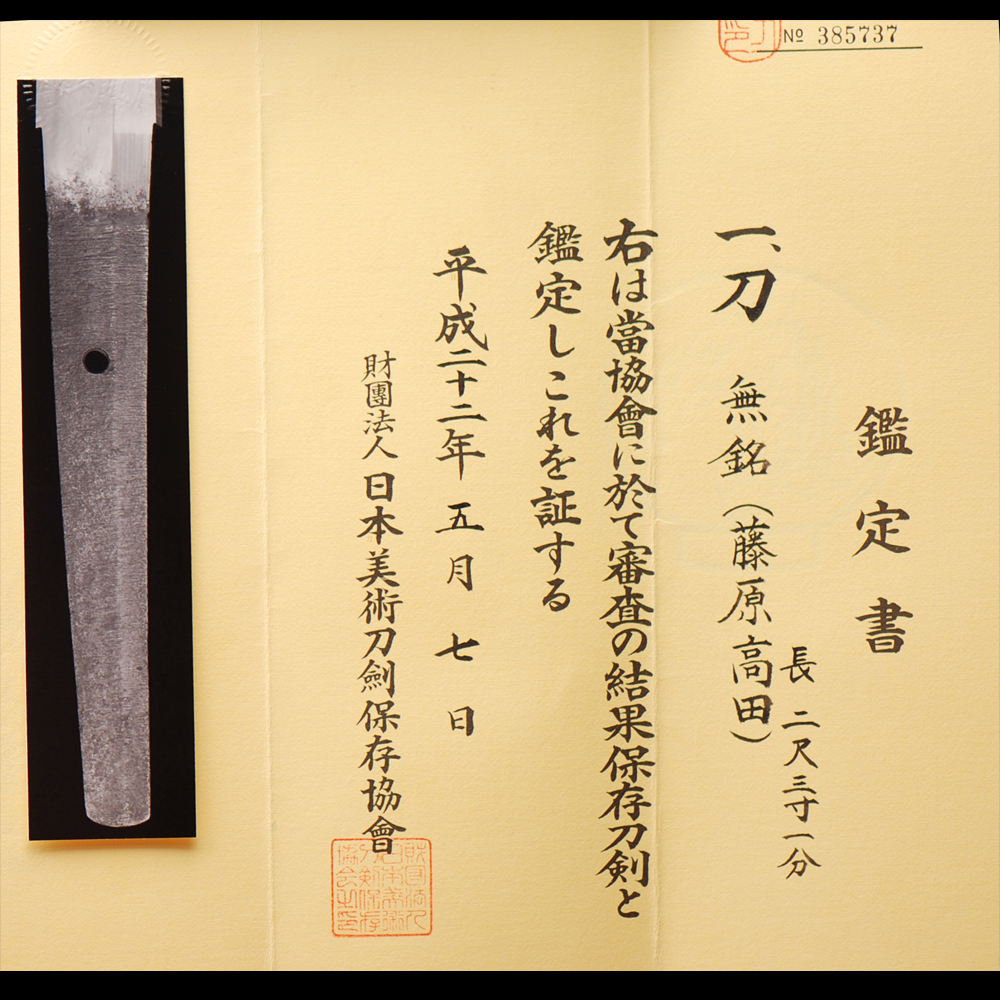 № 385737
鑑定書
一、刀 無銘(藤原高田)
長 二尺三寸一分
右は當協會に於て審査の結果保存刀剣と
鑑定しこれを証する
平成二十二年五月七日
財團法人日本美術刀劍保存協會
財団法人日本美術刀剣保存協会之印